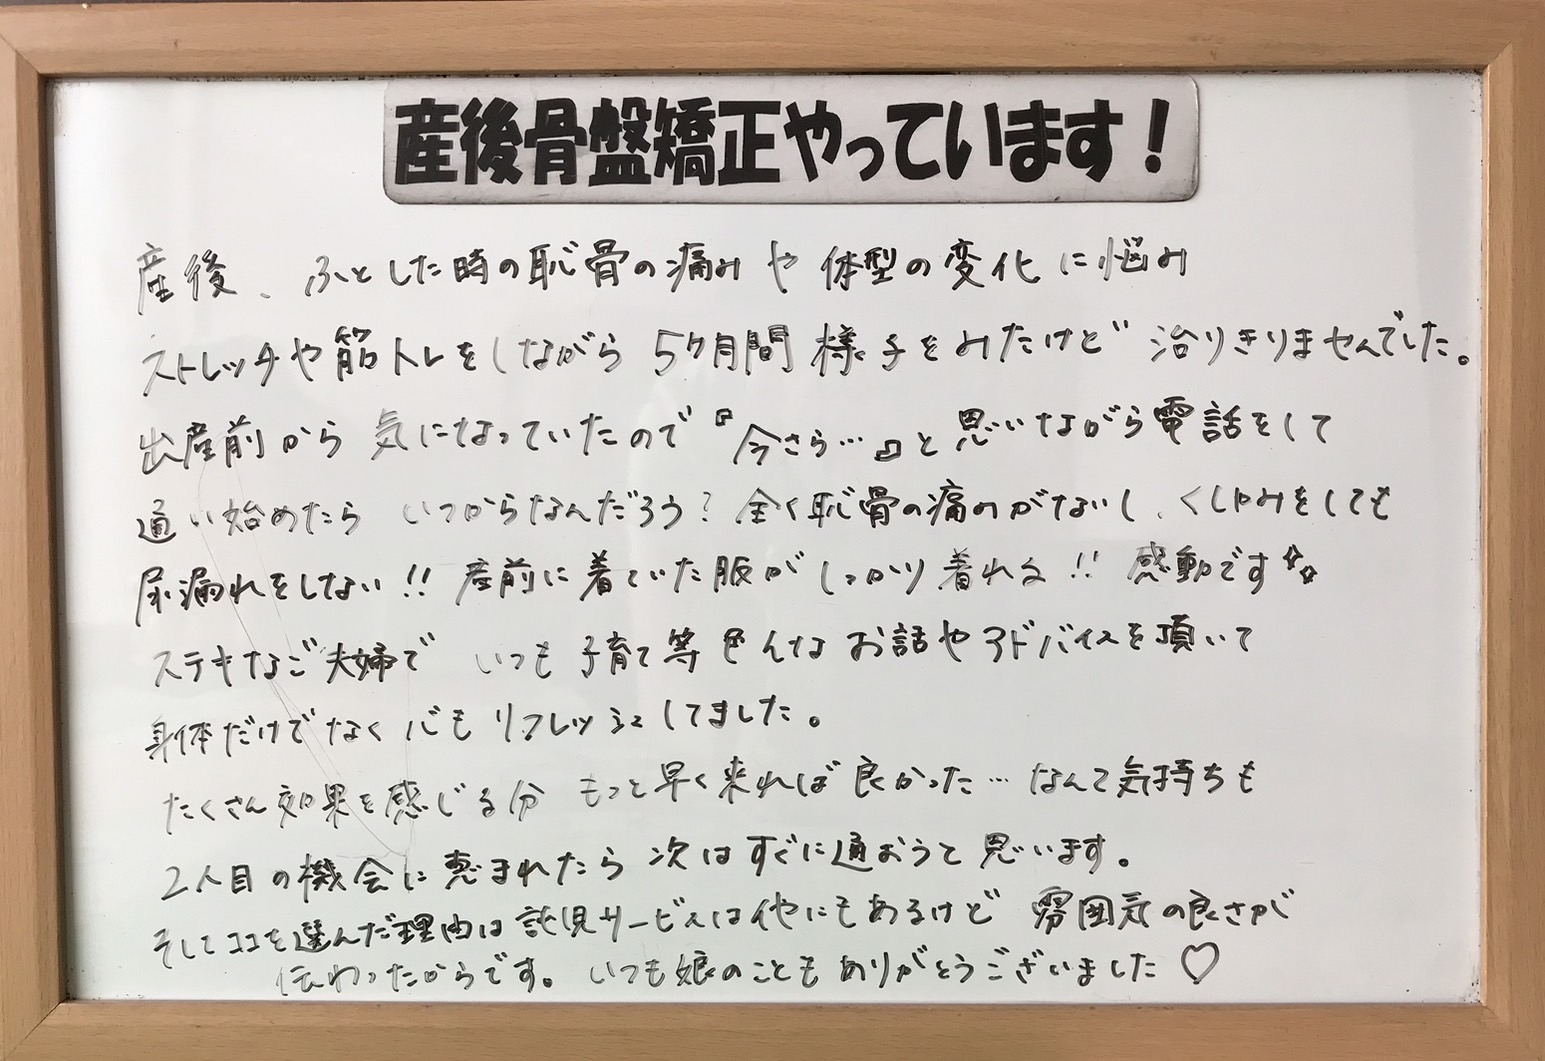 産後骨盤矯正やっています!
産後、ふとした時の恥骨の痛みや体型の変化に悩み
ストレッチや筋トレをしながら5ケ月間様子をみたけど治りきりませんでした。
出産前から気になっていたので『今さら…』と思いながら電話をして
通い始めたらいつからなんだろう?全く恥骨の痛みがないし、くしゃみをしても
尿漏れをしない!!産前に着ていた服がしっかり着れる!!感動です☆☆
ステキなご夫婦でいつも子育て等色んなお話やアドバイスを頂いて
身体だけでなく心もリフレッシュしてました。
たくさん効果を感じる分もっと早く来れば良かった…なんて気持ちも
2人目の機会に恵まれたら次はすぐに通おうて思います。
そしてココを選んだ理由は託児サービスは他にもあるけど雰囲気の良さが
伝わったからです。いつも娘のこともありがとうございました♡